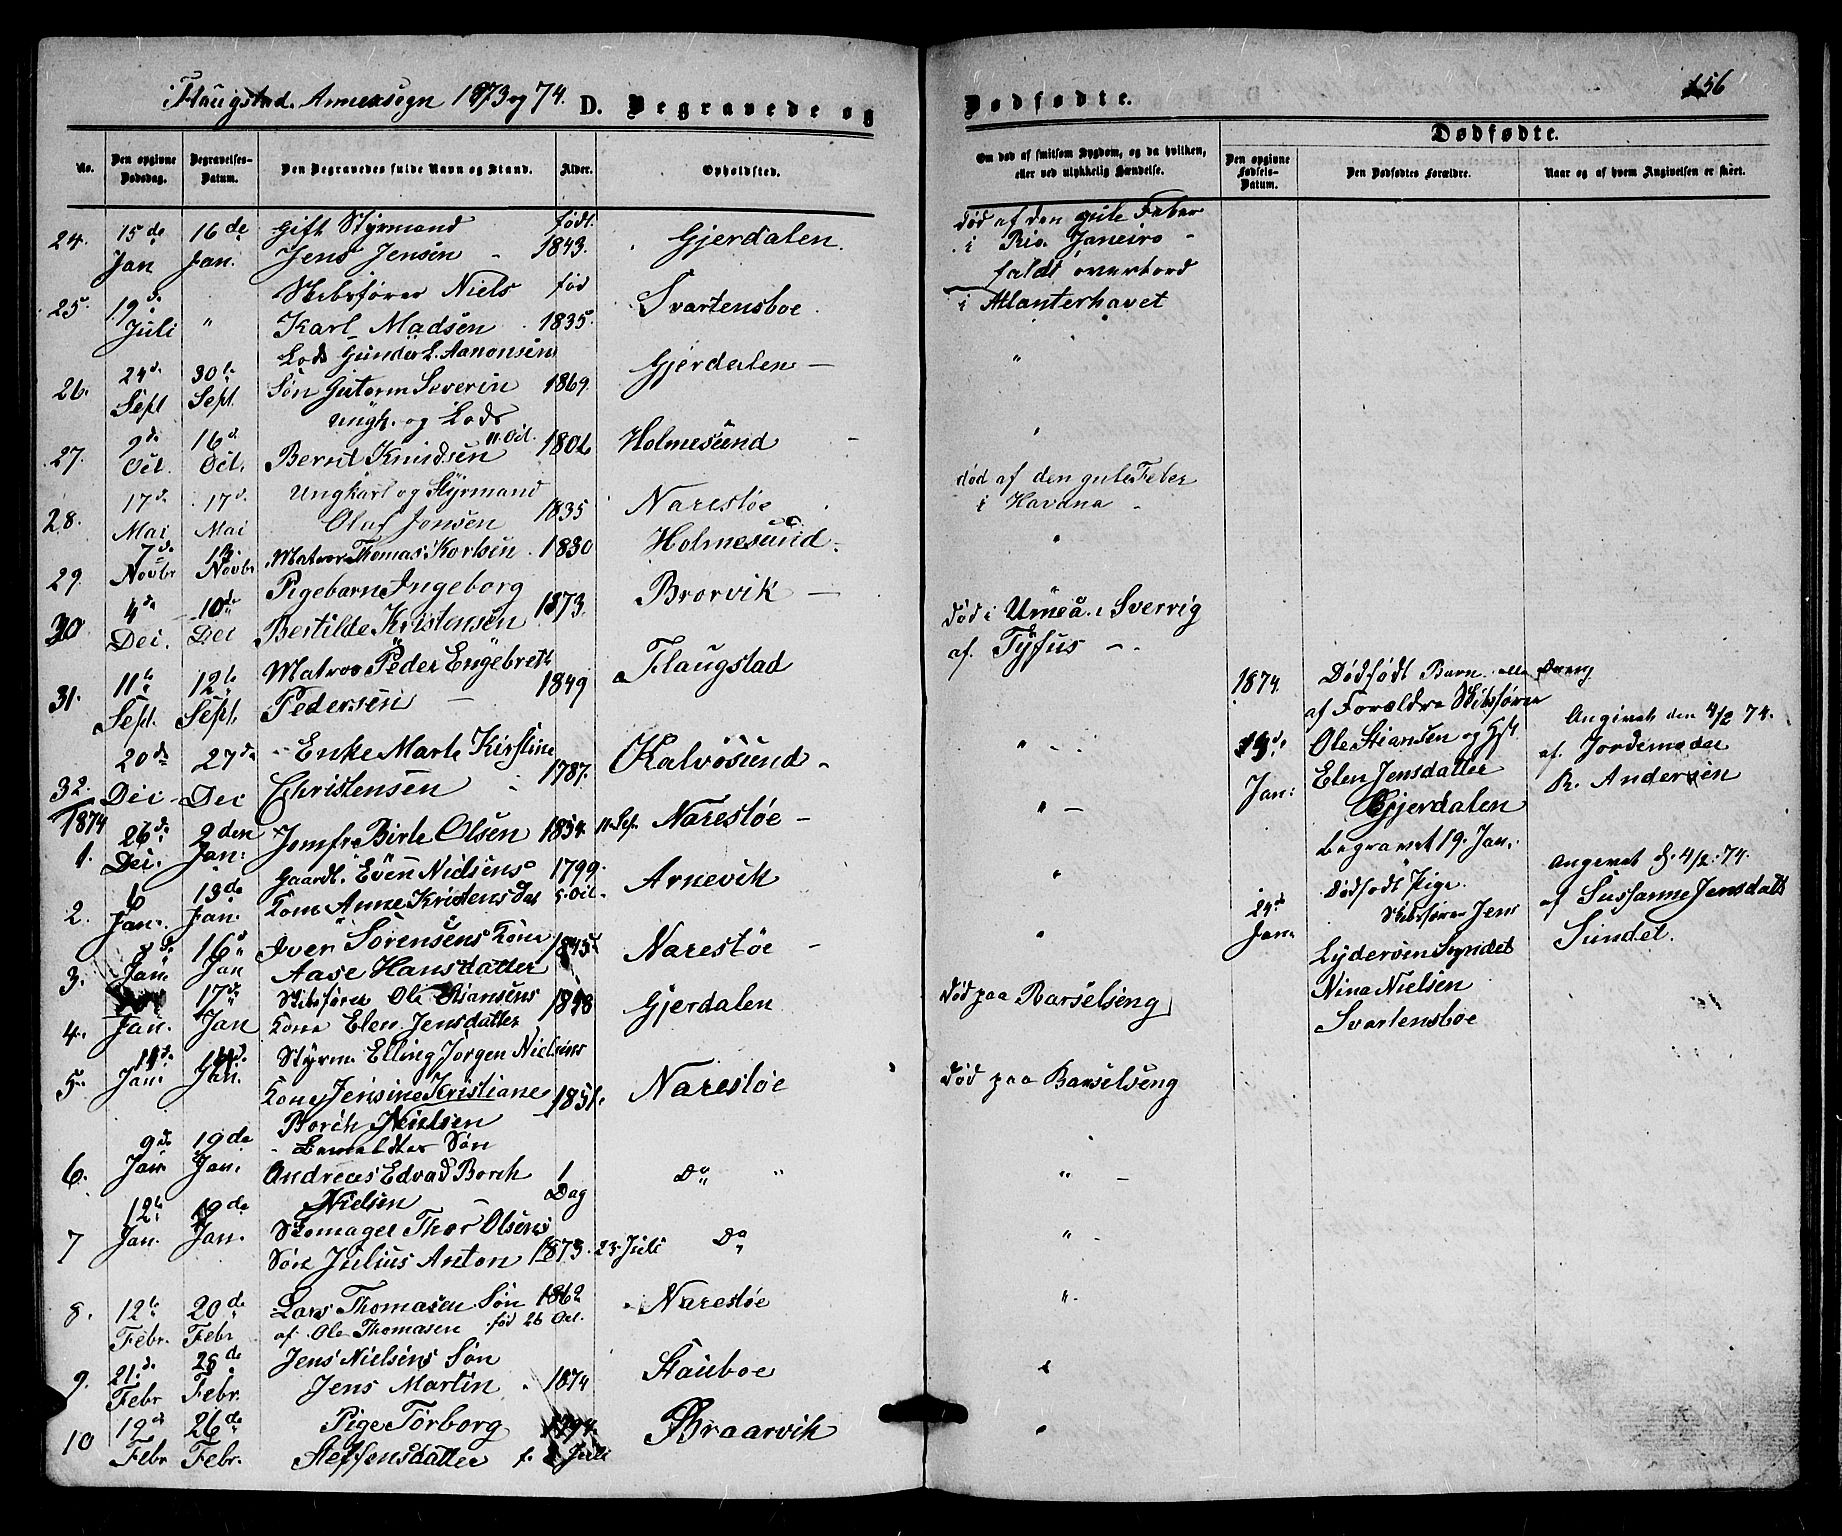 i Flaugstad. Annexsogn 1873 og 74. D. Begravede og
No.
Den opgivne Dødsdag.
Begravelses-Datum.
Den Begravedes fulde Navn og Stand.
Alder.
Opholdsted.
24. 15de Jan 16de Jan. Gift Styrmand født Gjerdalen.
Jens Jensen 1843.
25. 19de Juli " Skibsfører Niels fød Svartensboe
Karl Madsen 1835.
26. 24d. Sept 30te Sept. Lods Gunder L. Aanonsens Gjerdalen
Søn Gutorm Severin 1869.
27. 2d. Oct. 16d. Oct. Ungk. og Lods 11 Oct. Holmesund
Bernt Knudsen
28. 17d. Mai 17d. Mai Ungkarl og Styrmand Narestøe
Oluf Jensen 1835
29. 7de Novbr 13. Novbr Matros Thomas Korlsen 1830 Holmesund.
30 4de Dec. 10de Dec Pigebarn Ingeborg Brorvik
Bertilde Kristensen 1873.
31. 11te Sept. 12te Sept. Matros Peder Engebreth Flaugstad
Pedersen 1849
32. 20de Dec. 27de Dec Enke Marte Kirstine Kalvøsund
Christensen 1787.
1874
1. 26de Dec. 2den Jan: Jomfr Birte Olsen 1854. 11 Sep. Narestøe
2. 6 Jan. 13de Jan. Gaardb. Even Nielsens 1799. Arnevik
Kone Anne Kristensdat 5 Oct.
3. 8de Jan. 16d Jan Iver Sørensens Kone 1845 Narestøe
Aase Hansdatter
4. Jan. 17de Jan Skibsfører Ole Stiansens 1848 Gjerdalen
Kone Elen Jensdatter
5. Jan. Jan. Styrm. Elling Jørgen Nielsens
Kone Jensine Kristiane 1851. Narestøe
Borch Nielsen
6. 9de Jan. 19de Jan. Søn
Andreas Edvad Borch 1 Dag Do "
Nielsen
7 12te Jan. 19de Jan. Skomager Thor Olsens
Søn Julius Anton 1873. 23. Juli Do
8. 12te Febr. 20de Febr Lars Thomasen Søn 1862 Narestøe
af. Ole Thomasen fød 26 Oct.
9. 21.de Febr 26de Febr. Jens Nielsens Søn Stauboe
Jens Martin 1874
10 12te Febr 26de Febr. Pige Torborg 1794. Braarvik
Steffensdatter f. 2 Juli
Dødfødte.
156
Dødfødte.
Om død af smitsom Sygdom, og da hvilken, eller ved ulykkelig Hændelse.
Den opgivne Fødsels-Datum.
Den Dødfødtes Forældre.
Naar og af hvem Angivelsen er skeet.
død af den gule Feber
i Rio. Janeiro
faldt overbord
i Atlanterhavet
død af den gule Feber
i Havana
død i Umeå i Sverrig
af. Tyfus
død paa Barselseng
død paa Barselseng
1874. Dødfødt Barn
af Forældre Skibsfører
Ole Stiansen og Hst.
Jan: Elen Jensdatter
Gjerdalen
begravet 19. Jan.
Angivet den 4/2 74.
af. Jordemoder
R. Andersen
24de Jan. Dødfødt Pige.
Skibsfører Jens
Lydersen
Nina Nielsen
Svartensboe
Angivet d. 4/2. 74.
af Sussanne Jensdatt
Sundet.